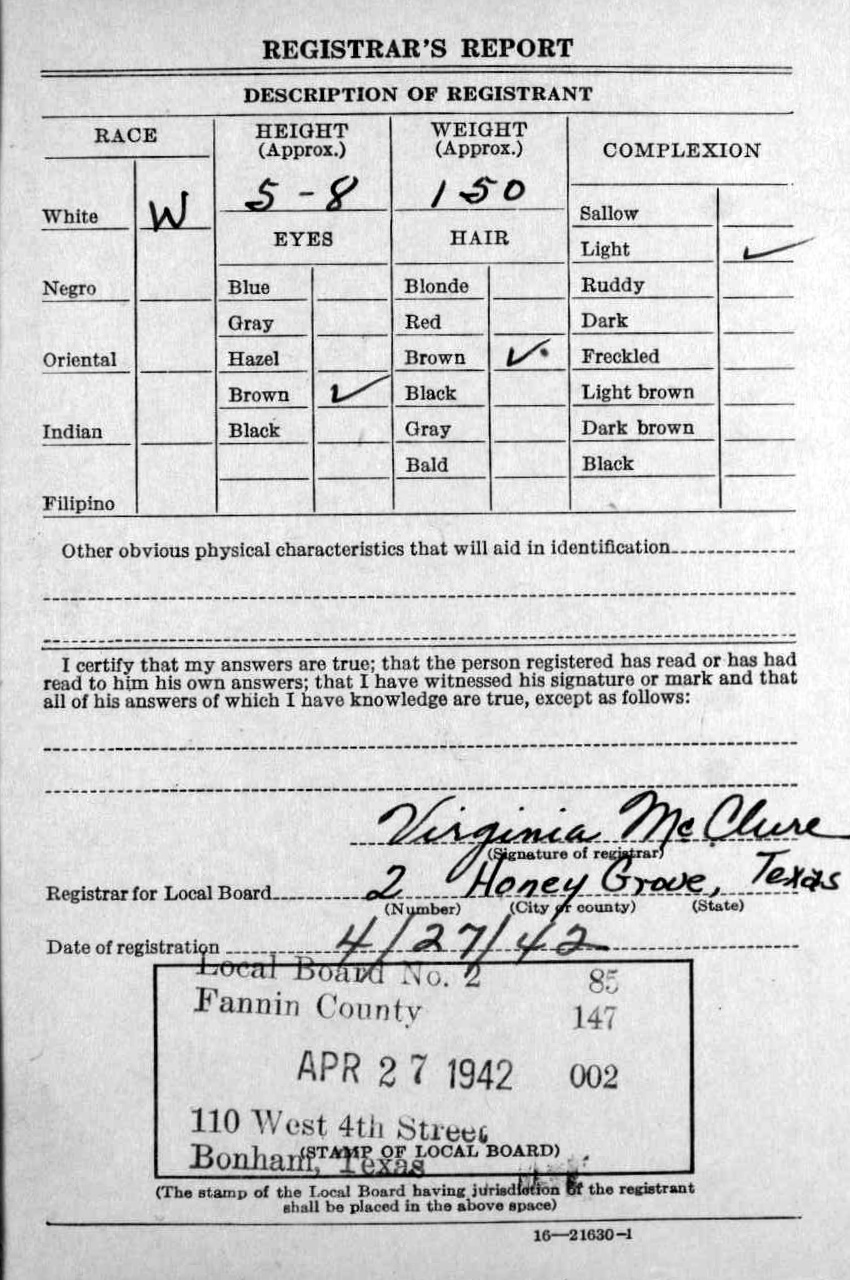 REGISTRAR'S REPORT
DESCRIPTION OF REGISTRANT
RACE HEIGHT (Approx.) WEIGHT (Approx.) COMPLEXION
5-8 150
White W EYES HAIR Sallow
Light ✓
Negro Blue Blonde Ruddy
Gray Red Dark
Oriental Hazel Brown ✓ Freckled
Brown ✓ Black Light brown
Indian Black Gray Dark brown
Bald Black
Filipino
Other obvious physical characteristics that will aid in identification
I certify that my answers are true; that the person registered has read or has had
read to him his own answers; that I have witnessed his signature or mark and that
all of his answers of which I have knowledge are true, except as follows:
Virginia McClure
(Signature of registrar)
Registrar for Local Board 2 Honey Grove, Texas
(Number) (City or county) (State)
Date of registration 4/27/42
Local Board No. 2 85
Fannin County 147
APR 27 1942 002
110 West 4th Street
(STAMP OF LOCAL BOARD)
Bonham, Texas
(The stamp of the Local Board having jurisdiction of the registrant
shall be placed in the above space)
16—21630-1